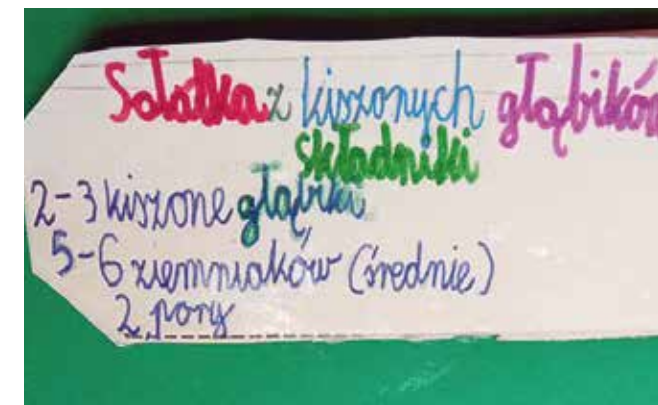 Sałatka z kiszonych głąbików
składniki
2-3 kiszone głąbiki
5-6 ziemniaków (średnie)
2 pory